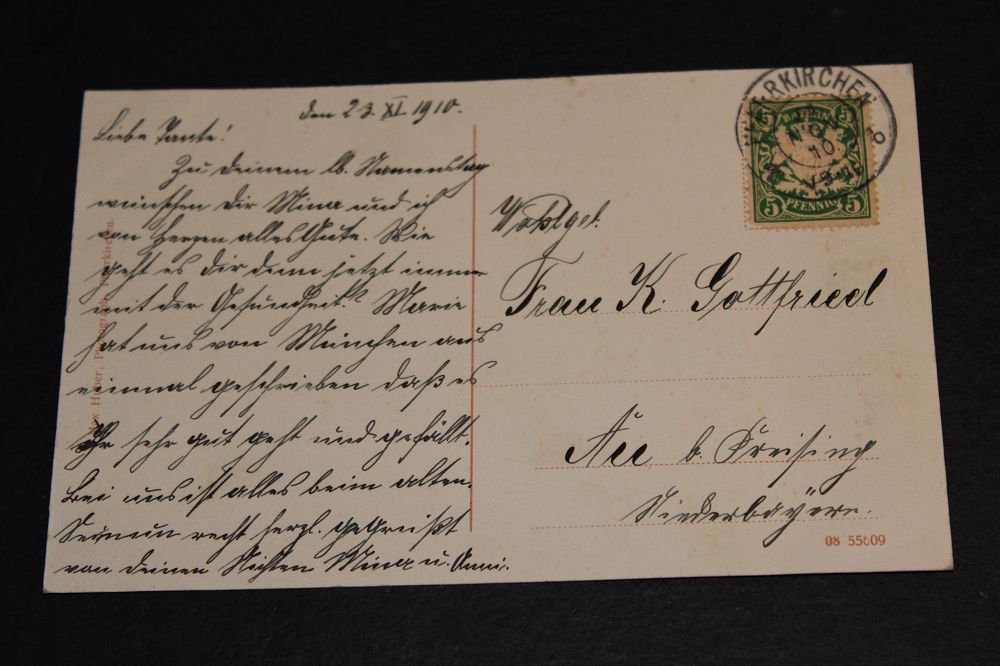 den 23. XI. 1910.
Liebe Tante!
Zu deinem lb. Namenstag
wünschen dir Mina und ich
von Herzen alles Gute. Wie
geht es dir denn jetzt immer
mit der Gesundheit? Marie
hat uns von München aus
einmal geschrieben daß es
Ihr sehr gut geht und gefällt.
Bei uns ist alles beim alten.
Sei nun recht herzl. gegrüßt
von deinen Nichten Mina u. Anni.
Huber, Photograph,
RKIRCHEN
NOV
10
BAYERN
5 5
5 PFENNIG 5
Wohlgeb.
Frau K. Gottfried
Au b. Freising
Niederbayern.
08 55609